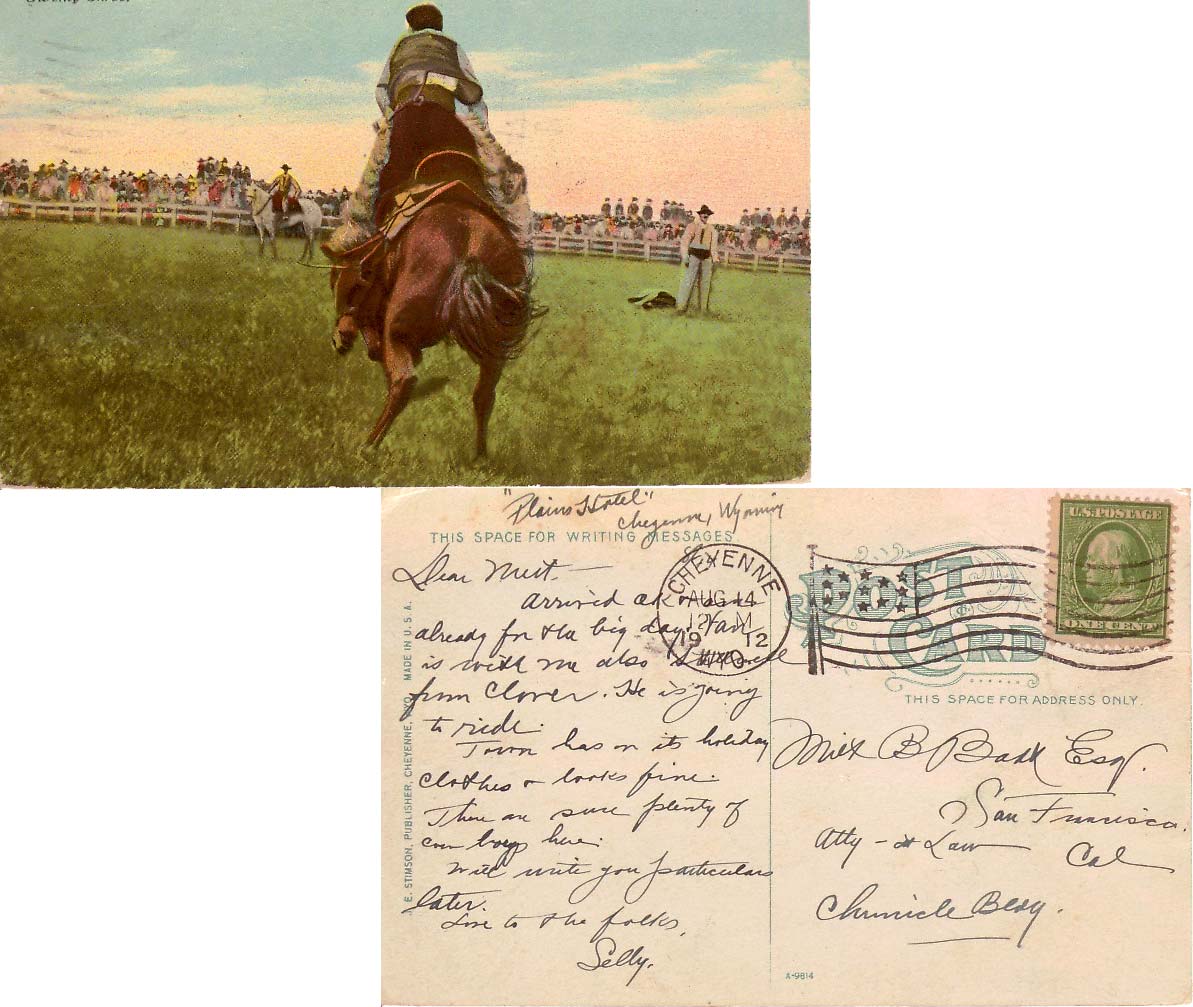 "Plains Hotel"
Cheyenne, Wyoming
THIS SPACE FOR WRITING MESSAGES
Dear Milt. —
arrived ok &
already for the big day.
is with me also
from Clover. He is going
to ride.
Town has on its holiday
clothes & looks fine.
There are sure plenty of
cow boys here.
Will write you particulars
later.
Love to the folks,
Selly.
J. E. STIMSON, PUBLISHER, CHEYENNE, WYO. MADE IN U.S.A.
CHEYENNE
AUG 14
12 M
1912
WYO
U.S. POSTAGE
ONE CENT
POST
CARD
THIS SPACE FOR ADDRESS ONLY.
Milt B Esq.
San Francisco.
Atty-at Law Cal
Chronicle Bldg.
A-9814